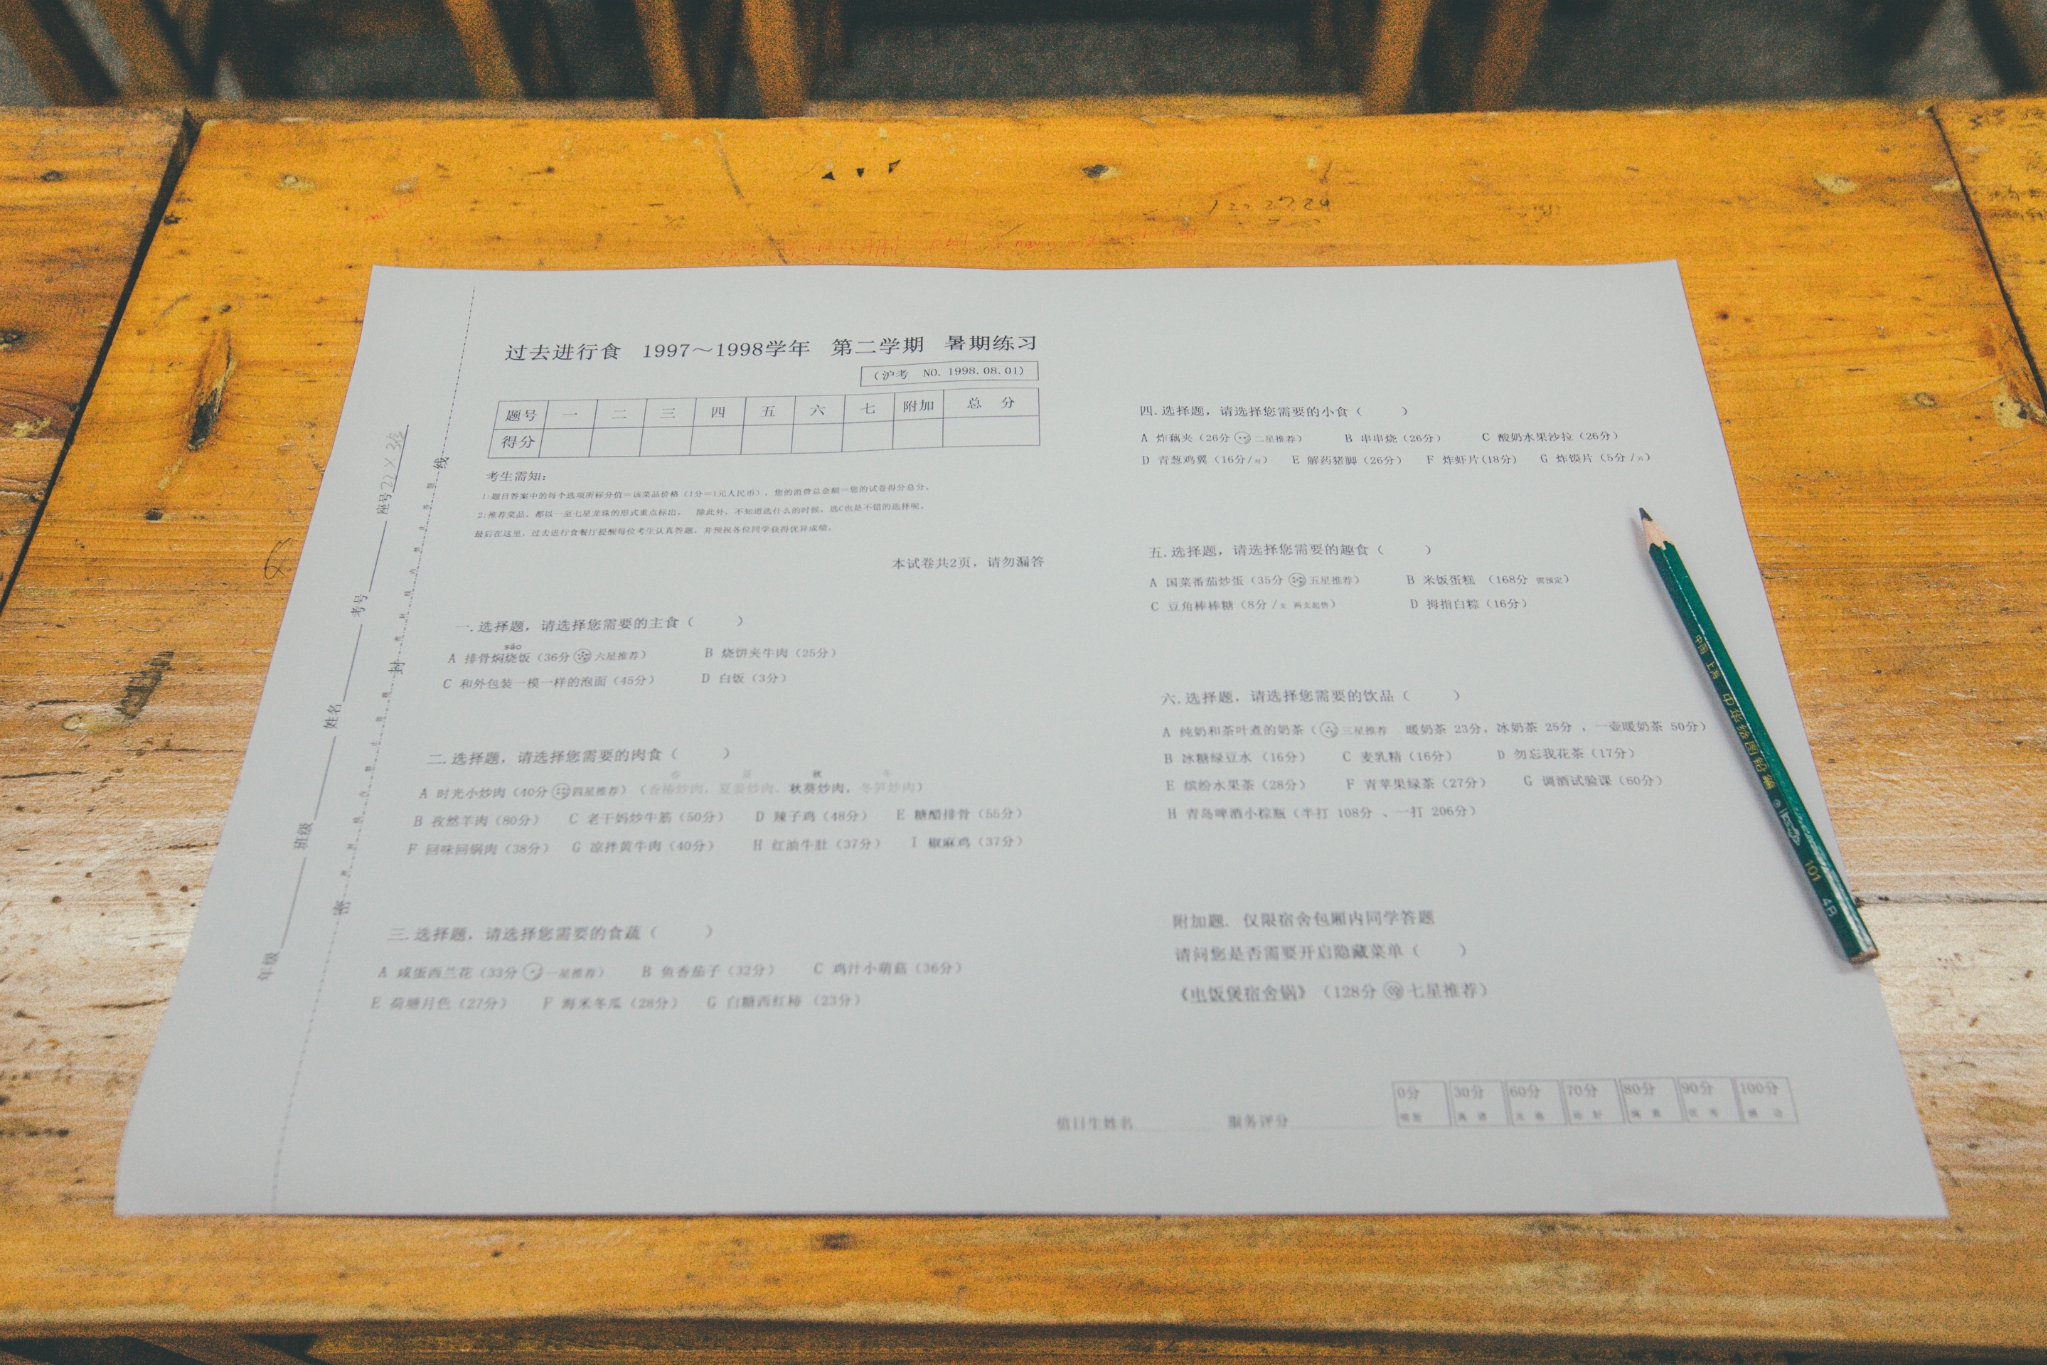 过去进行食 1997～1998学年 第二学期 暑期练习
（沪考 NO. 1998.08.01）
题号 一 二 三 四 五 六 七 附加 总 分
得分
考生需知：
1:题目答案中的每个选项所标分值=该菜品价格（1分=1元人民币），您的消费总金额=您的试卷得分总分。
2:推荐菜品，都以一至七星龙珠的形式重点标出。 除此外，不知道选什么的时候，选C也是不错的选择呢。
最后在这里，过去进行食餐厅提醒每位考生认真答题，并预祝各位同学获得优异成绩。
本试卷共2页，请勿漏答
一.选择题，请选择您需要的主食（ ）
sāo
A 排骨焖烧饭（36分 六星推荐） B 烧饼夹牛肉（25分）
C 和外包装一模一样的泡面（45分） D 白饭（3分）
二.选择题，请选择您需要的肉食（ ）
春 夏 秋 冬
A 时光小炒肉（40分 四星推荐）（香椿炒肉，夏姜炒肉，秋葵炒肉，冬笋炒肉）
B 孜然羊肉（80分） C 老干妈炒牛筋（50分） D 辣子鸡（48分） E 糖醋排骨（55分）
F 回味回锅肉（38分） G 凉拌黄牛肉（40分） H 红油牛肚（37分） I 椒麻鸡（37分）
三.选择题，请选择您需要的食蔬（ ）
A 咸蛋西兰花（33分 一星推荐） B 鱼香茄子（32分） C 鸡汁小萌菇（36分）
E 荷塘月色（27分） F 海米冬瓜（28分） G 白糖西红柿（23分）
四.选择题，请选择您需要的小食（ ）
A 炸藕夹（26分 二星推荐） B 串串烧（26分） C 酸奶水果沙拉（26分）
D 青葱鸡翼（16分/对） E 解药猪脚（26分） F 炸虾片(18分) G 炸馍片（5分/片）
五.选择题，请选择您需要的趣食（ ）
A 国菜番茄炒蛋（35分 五星推荐） B 米饭蛋糕 （168分 需预定）
C 豆角棒棒糖（8分/支 两支起售） D 拇指白粽（16分）
六.选择题，请选择您需要的饮品（ ）
A 纯奶和茶叶煮的奶茶（ 三星推荐 暖奶茶 23分，冰奶茶 25分 ，一壶暖奶茶 50分）
B 冰糖绿豆水（16分） C 麦乳精（16分） D 勿忘我花茶（17分）
E 缤纷水果茶（28分） F 青苹果绿茶（27分） G 调酒试验课（60分）
H 青岛啤酒小棕瓶（半打 108分 、一打 206分）
附加题. 仅限宿舍包厢内同学答题
请问您是否需要开启隐藏菜单（ ）
《电饭煲宿舍锅》（128分 七星推荐）
值日生姓名 服务评分
0分 30分 60分 70分 80分 90分 100分
年级 班级 姓名 考号 座号
密 封 线
中国 上海 中华绘图铅笔 101 4B